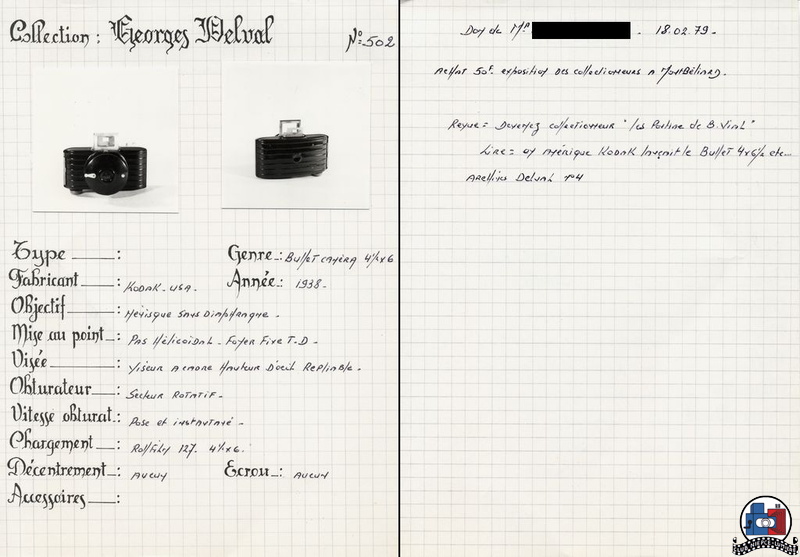 Collection : Georges Delval
N° 502
Type :
Genre : Bullet caméra 4½x6
Fabricant : Kodak - USA.
Année : 1938-
Objectif : Ménisque sans Diaphragme.
Mise au point : Pas Hélicoïdal - Foyer Fixe T-D-
Visée : Viseur a cadre Hauteur D'oeil Repliable.
Obturateur : Secteur Rotatif-
Vitesse obturat. : Pose et instantané-
Chargement : Rollfilm 127. 4½x6.
Décentrement : Aucun
Ecrou : Aucun
Accessoires :
Don de Mr - 18.02.79-
Achat 50F. exposition des collectionneurs a Montbéliard.
Revue = Devenez collectionneur "les Pontine de B. Vial"
Lire = en Amérique Kodak le Bullet 4x6½ etc...
Archives Delval n°4